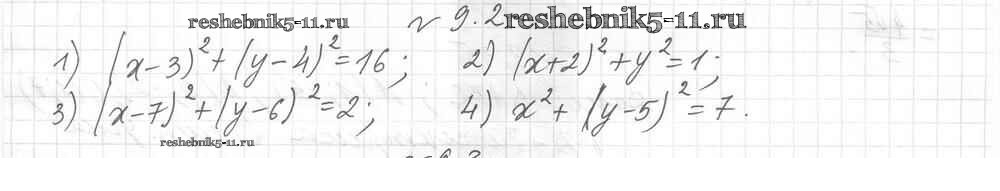 reshebnik5-11.ru № 9.2 reshebnik5-11.ru
1) (x-3)²+(y-4)²=16; 2) (x+2)²+y²=1;
3) (x-7)²+(y-6)²=2; 4) x²+(y-5)²=7.
reshebnik5-11.ru